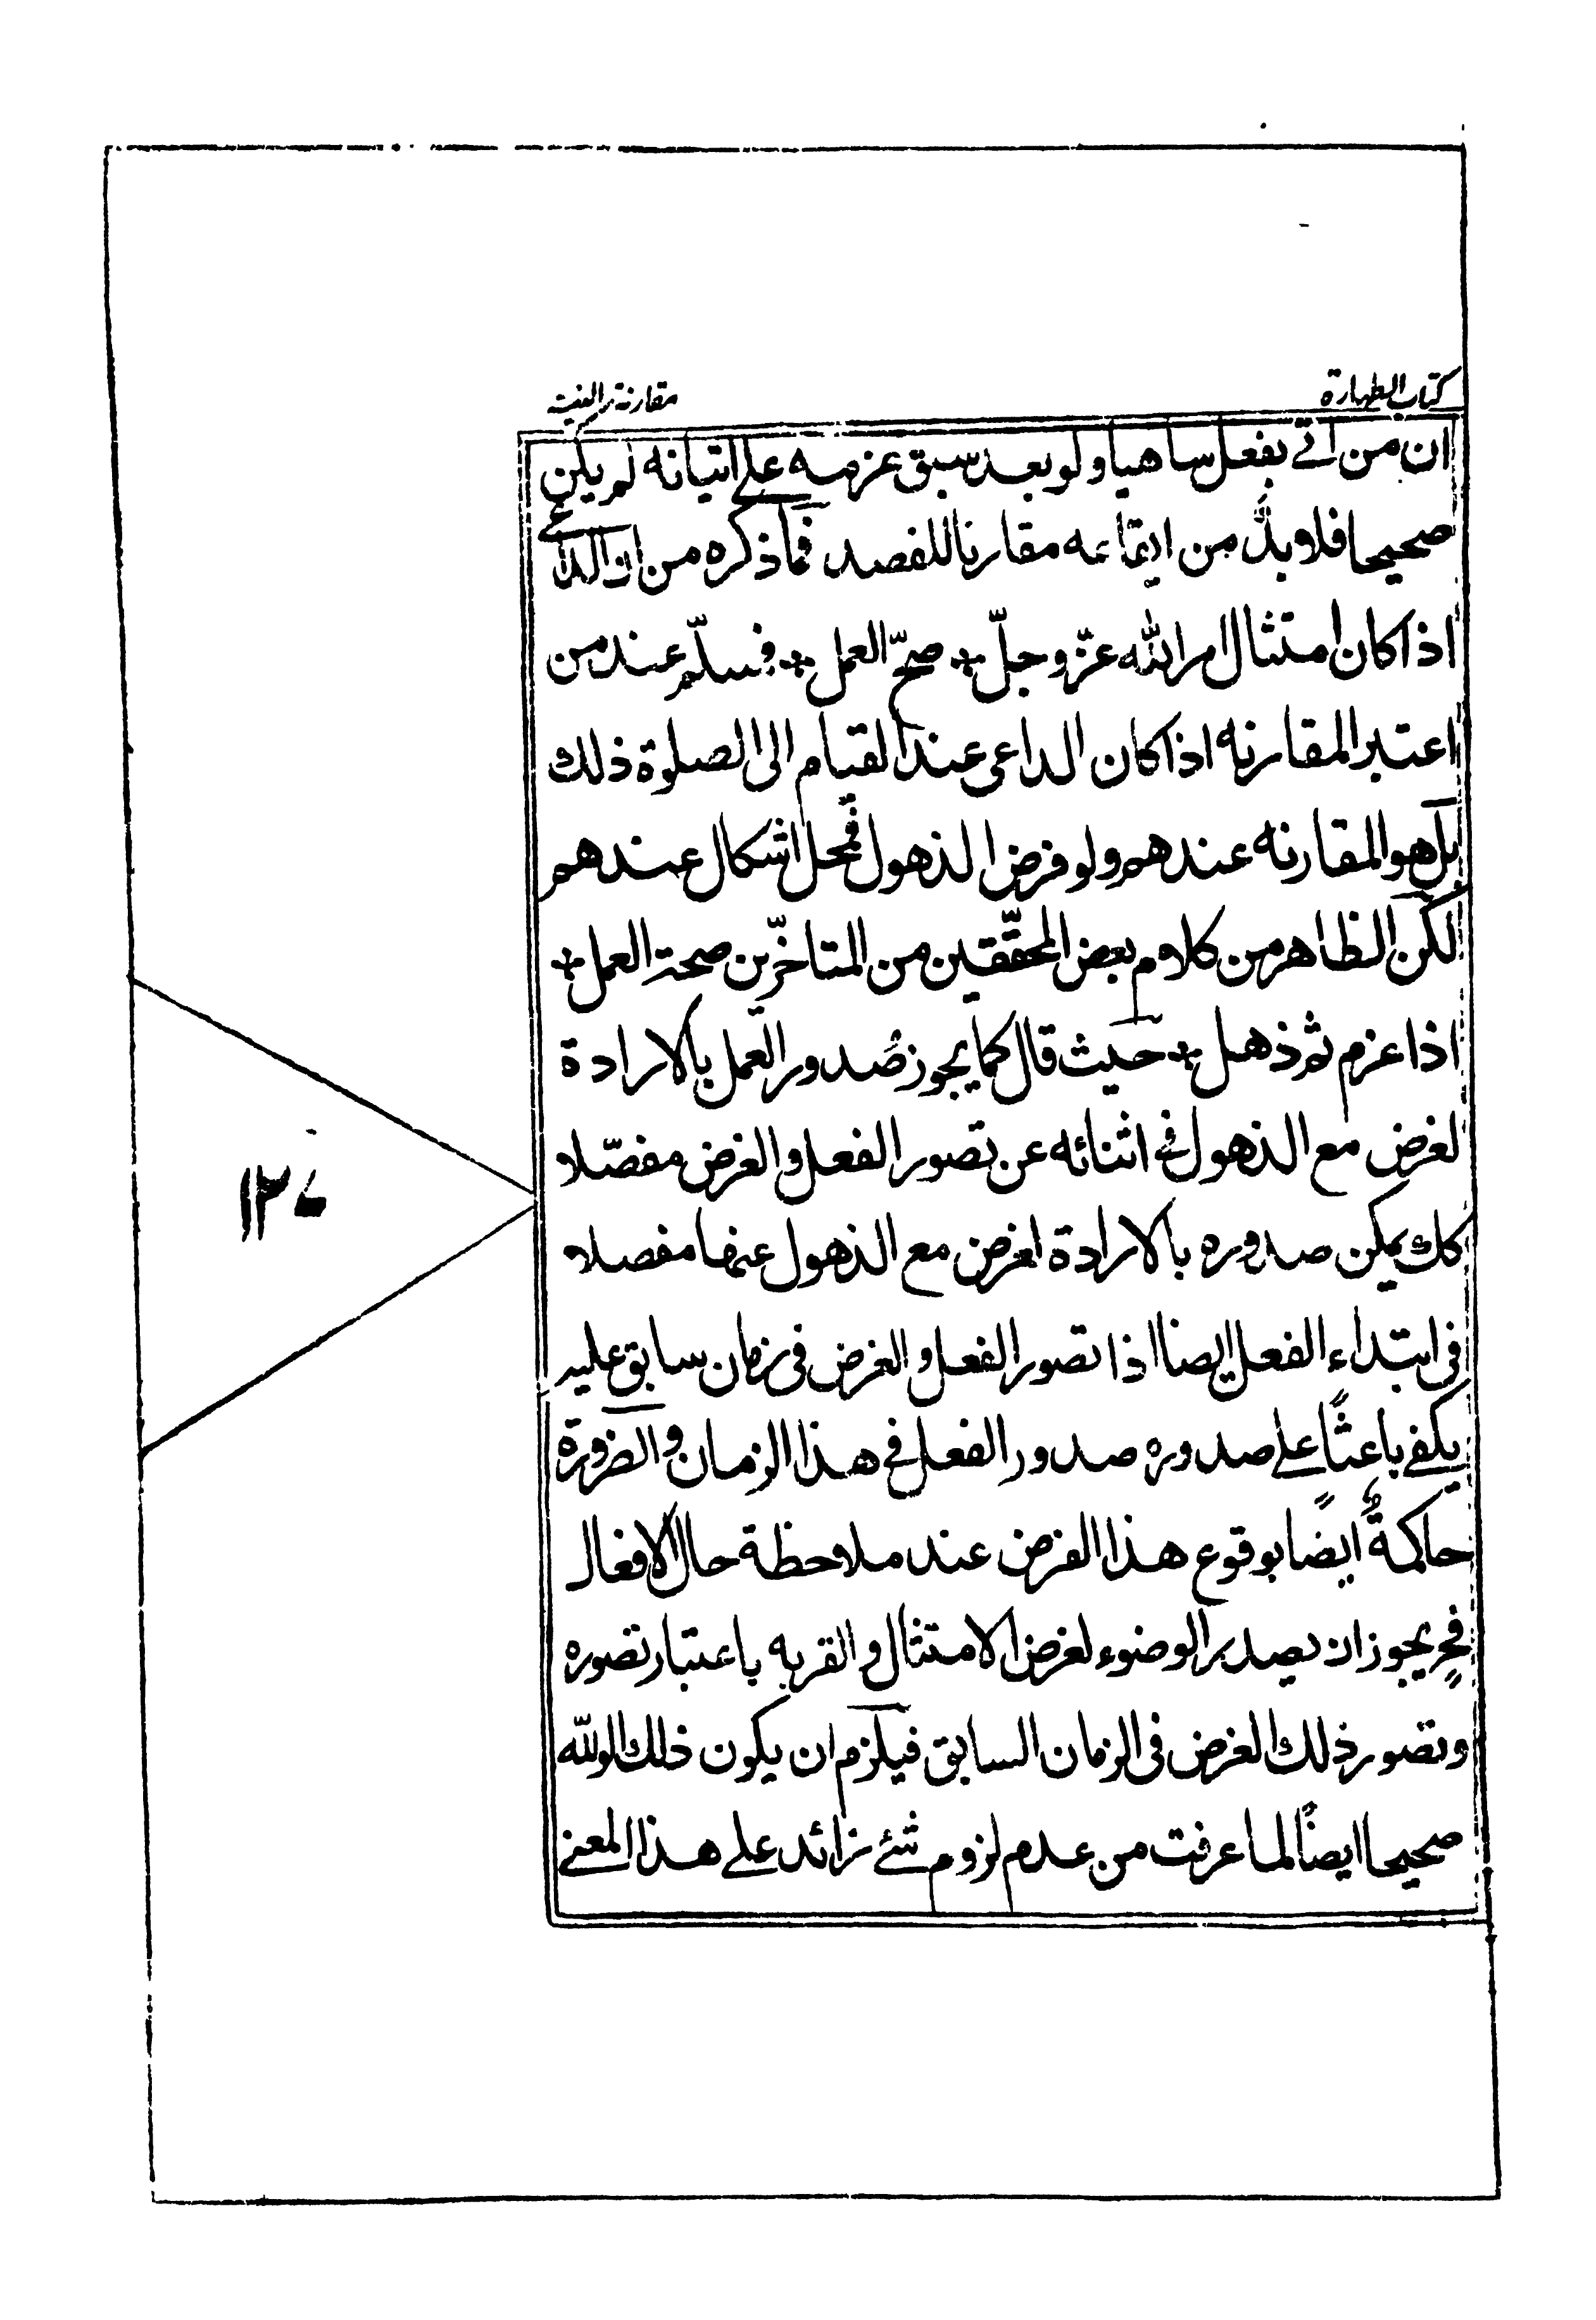 كتاب الطهارة
مقارنة النية
ان من اتى بفعل ساهيا ولو بعد سبق عزمه على اتيانه لم يكن
صحيحا فلا بدّ من ايقاعه مقارنا للقصد فما ذكره من ان الداعي
اذا كان امتثال امر الله عزّ وجلّ صحّ العمل فمسلّم عند من
اعتبر المقارنه اذا كان الداعى عند القيام الى الصلوة ذلك
بل هو المقارنه عندهم ولو فرض الذهول فمحل اشكال عندهم
لكن الظاهر من كلام بعض المحقّقين من المتاخّرين صحة العمل
اذا عزم ثم ذهل حيث قال كما يجوز صدور العمل بالارادة
لغرض مع الذهول في اثنائه عن تصور الفعل والغرض مفصّلا
كك يمكن صدوره بالارادة لغرض مع الذهول عنهما مفصلا
فى ابتداء الفعل ايضا اذا تصور الفعل والغرض فى زمان سابق عليه
يكفي باعثًا على صدوره صدور الفعل في هذا الزمان والضرورة
حاكمة ايضًا بوقوع هذا الفرض عند ملاحظة حال الافعال
فح يجوز ان يصدر الوضوء لغرض الامتثال والقربه باعتبار تصوره
وتصور ذلك الغرض فى الزمان السابق فيلزم ان يكون ذلك
صحيحا ايضًا لما عرفت من عدم لزوم شئ زائد على هذا المعنى